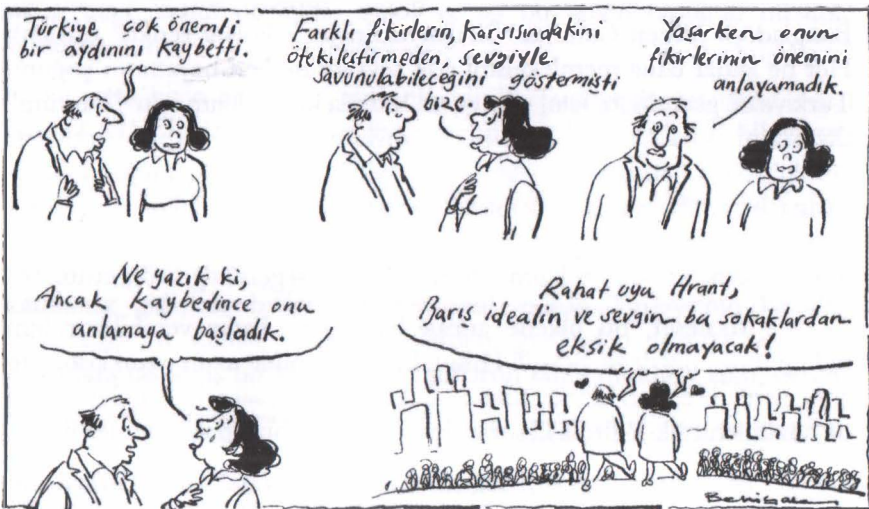 Türkiye çok önemli
bir aydınını kaybetti.
Farklı fikirlerin, karşısındakini
ötekileştirmeden, sevgiyle
savunulabileceğini göstermişti
bize.
Yaşarken onun
fikirlerinin önemini
anlayamadık.
Ne yazık ki,
Ancak kaybedince onu
anlamaya başladık.
Rahat uyu Hrant,
Barış idealin ve sevgin bu sokaklardan
eksik olmayacak!